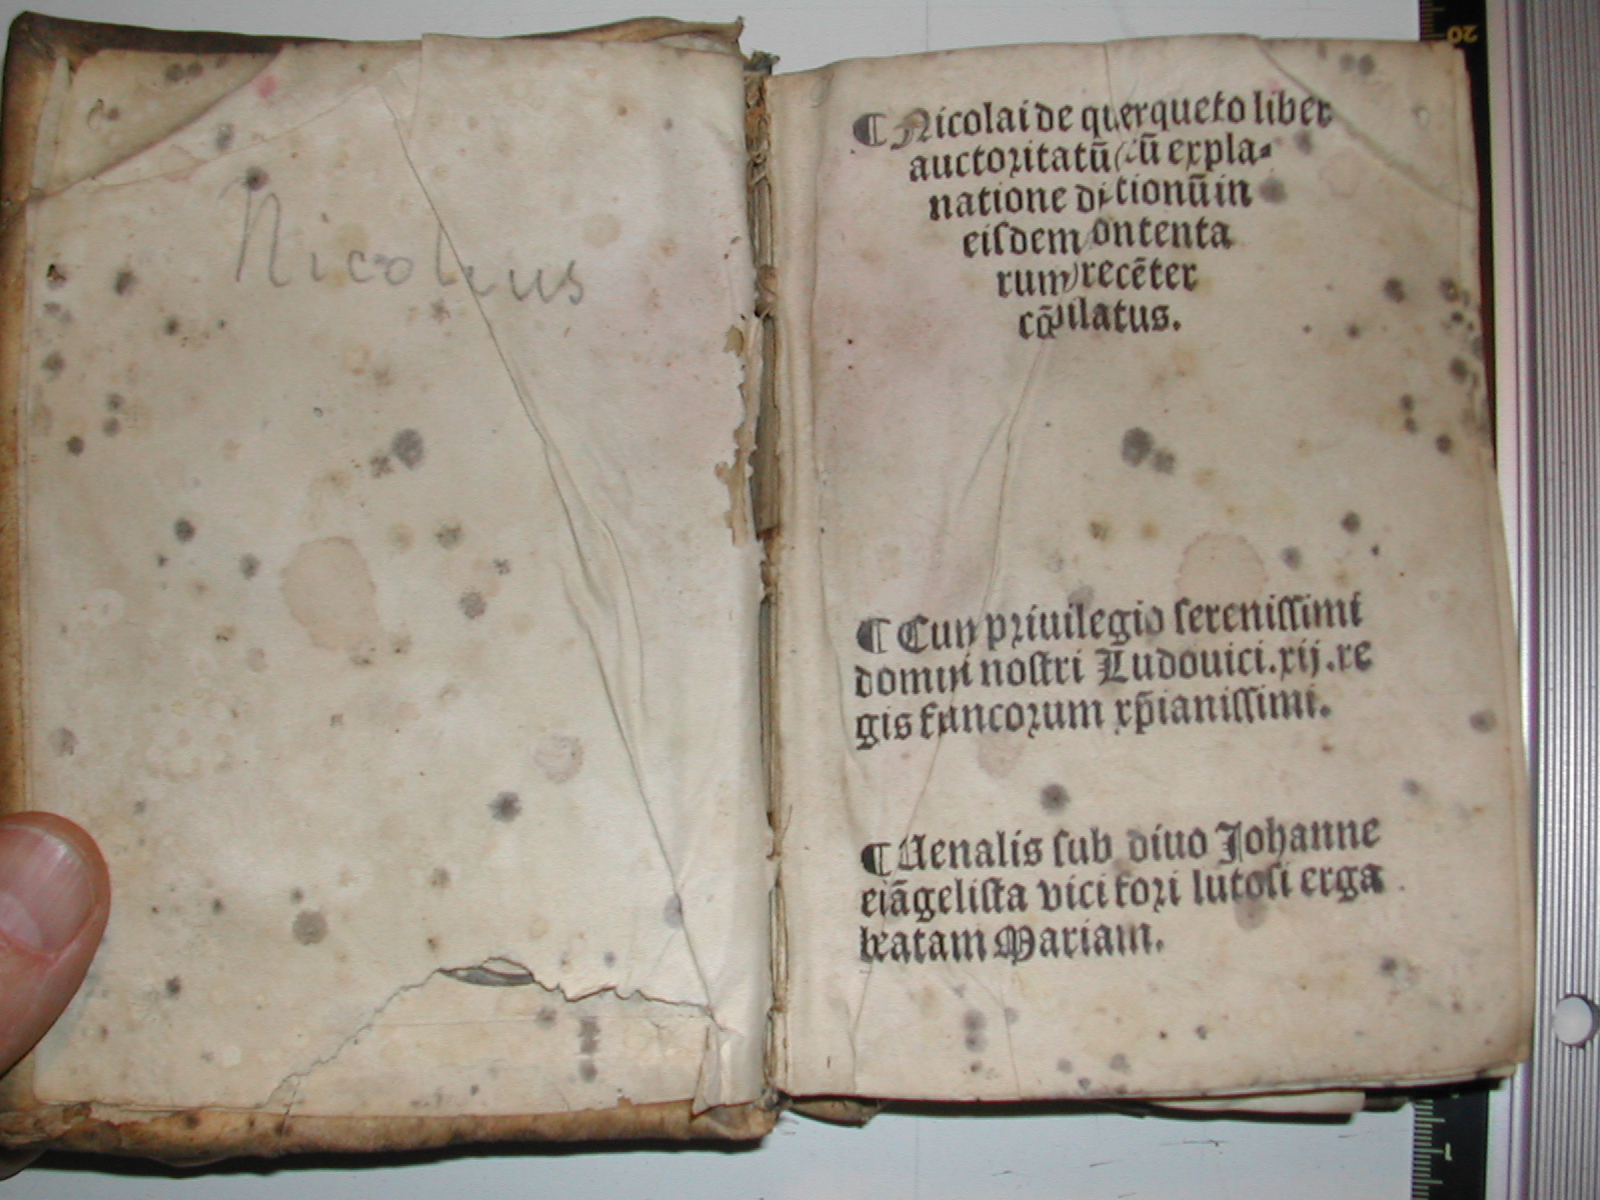 Nicolaus
¶ Nicolai de querqueto liber
auctoritatū (cū expla-
natione dictionū in
eisdem contenta
rum) recēter
cōpilatus.
¶ Cum priuilegio serenissimi
domini nostri Ludouici.xij.re
gis francorum xp̄ianissimi.
¶ Uenalis sub diuo Johanne
euāgelista vici fori lutosi erga
beatam Mariam.
20
1